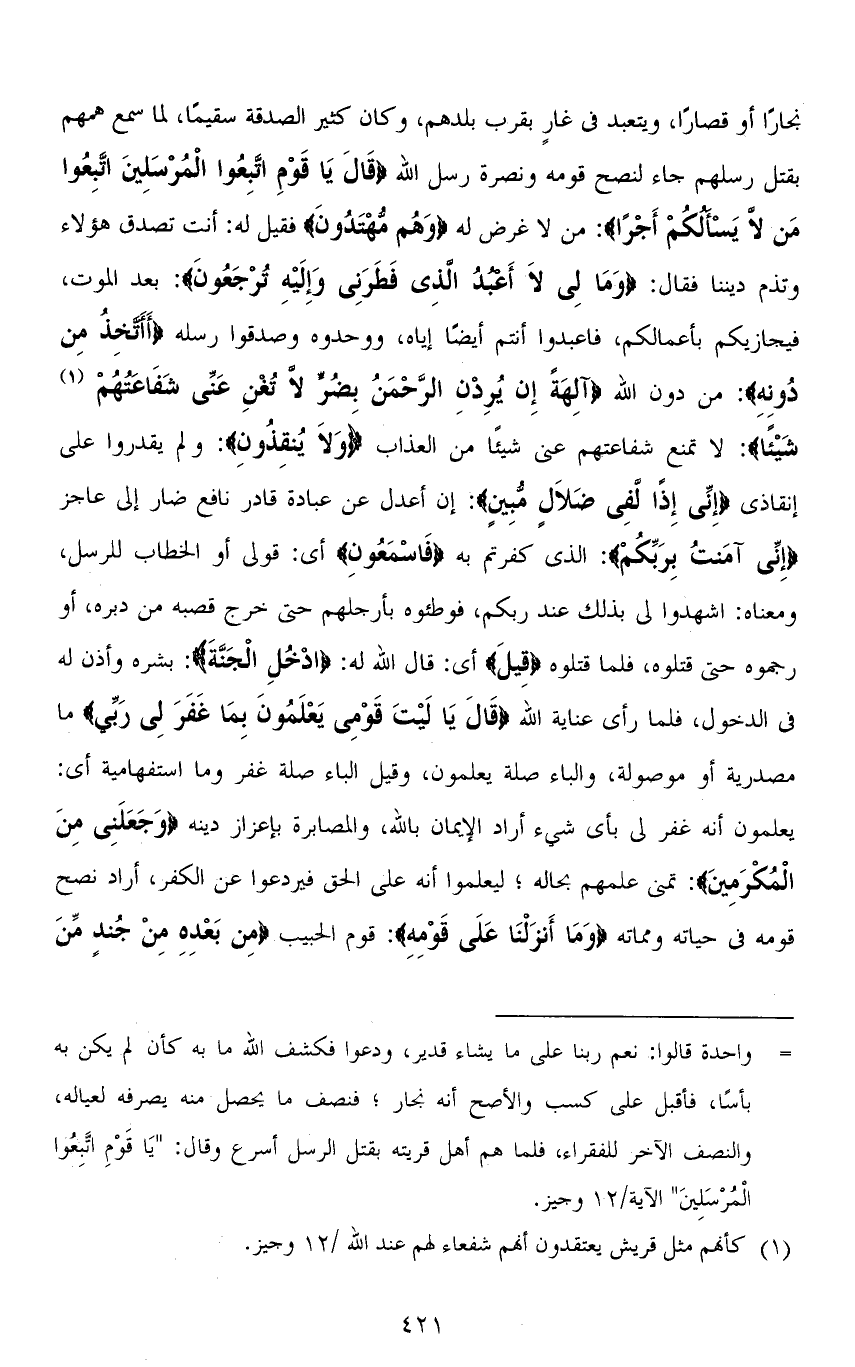 نجارًا أو قصارًا، ويتعبد فى غارٍ بقرب بلدهم، وكان كثير الصدقة سقيمًا، لما سمع همهم
بقتل رسلهم جاء لنصح قومه ونصرة رسل الله ﴿قَالَ يَا قَوْمِ اتَّبِعُوا الْمُرْسَلِينَ اتَّبِعُوا
مَن لاَّ يَسْأَلُكُمْ أَجْرًا﴾: من لا غرض له ﴿وَهُم مُّهْتَدُونَ﴾ فقيل له: أنت تصدق هؤلاء
وتذم ديننا فقال: ﴿وَمَا لِى لاَ أَعْبُدُ الَّذِى فَطَرَنِى وَإِلَيْهِ تُرْجَعُونَ﴾: بعد الموت،
فيجازيكم بأعمالكم، فاعبدوا أنتم أيضًا إياه، ووحدوه وصدقوا رسله ﴿أَأَتَّخِذُ مِن
دُونِهِ﴾: من دون الله ﴿آلِهَةً إِن يُرِدْنِ الرَّحْمَنُ بِضُرٍّ لاَّ تُغْنِ عَنِّى شَفَاعَتُهُمْ (١)
شَيْئًا﴾: لا تمنع شفاعتهم عنى شيئًا من العذاب ﴿وَلاَ يُنقِذُونِ﴾: ولم يقدروا على
إنقاذى ﴿إِنِّى إِذًا لَّفِى ضَلاَلٍ مُّبِينٍ﴾: إن أعدل عن عبادة قادر نافع ضار إلى عاجز
﴿إِنِّى آمَنتُ بِرَبِّكُمْ﴾: الذى كفرتم به ﴿فَاسْمَعُونِ﴾ أى: قولى أو الخطاب للرسل،
ومعناه: اشهدوا لى بذلك عند ربكم، فوطئوه بأرجلهم حتى خرج قصبه من دبره، أو
رجموه حتى قتلوه، فلما قتلوه ﴿قِيلَ﴾ أى: قال الله له: ﴿ادْخُلِ الْجَنَّةَ﴾: بشره وأذن له
فى الدخول، فلما رأى عناية الله ﴿قَالَ يَا لَيْتَ قَوْمِى يَعْلَمُونَ بِمَا غَفَرَ لِى رَبِّي﴾ ما
مصدرية أو موصولة، والباء صلة يعلمون، وقيل الباء صلة غفر وما استفهامية أى:
يعلمون أنه غفر لى بأى شيء أراد الإيمان بالله، والمصابرة بإعزاز دينه ﴿وَجَعَلَنِى مِنَ
الْمُكْرَمِينَ﴾: تمنى علمهم بحاله ؛ ليعلموا أنه على الحق فيردعوا عن الكفر، أراد نصح
قومه فى حياته ومماته ﴿وَمَا أَنزَلْنَا عَلَى قَوْمِهِ﴾: قوم الحبيب ﴿مِن بَعْدِهِ مِنْ جُندٍ مِّنَ
= واحدة قالوا: نعم ربنا على ما يشاء قدير، ودعوا فكشف الله ما به كأن لم يكن به
بأسًا، فأقبل على كسب والأصح أنه نجار ؛ فنصف ما يحصل منه يصرفه لعياله،
والنصف الآخر للفقراء، فلما هم أهل قريته بقتل الرسل أسرع وقال: "يَا قَوْمِ اتَّبِعُوا
الْمُرْسَلِينَ" الآية/١٢ وجيز.
(١) كأنهم مثل قريش يعتقدون أنهم شفعاء لهم عند الله /١٢ وجيز.
٤٢١